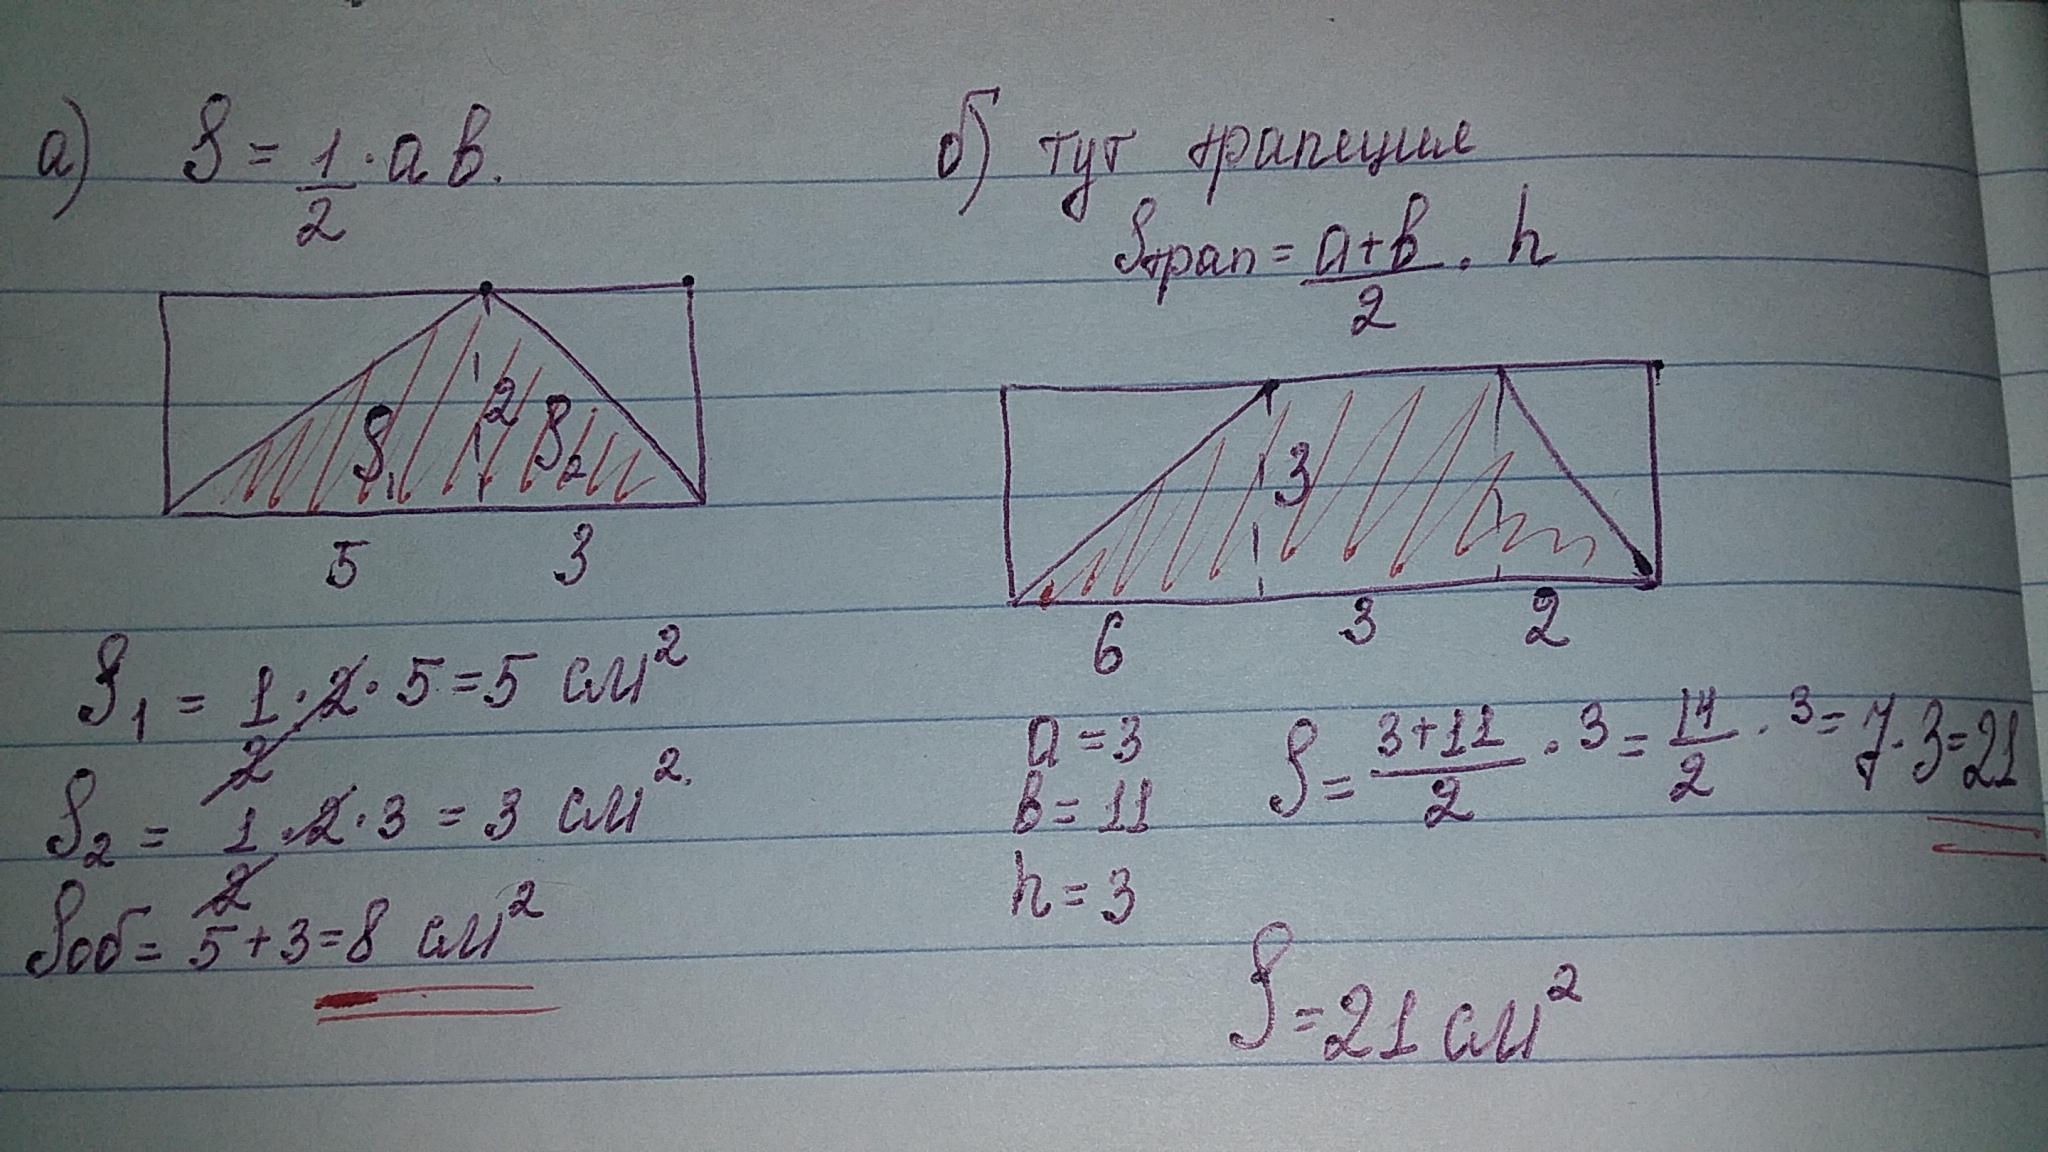 а) S = 1/2 · a b.
2
S₁ S₂
5 3
S₁ = 1/2 · 2 · 5 = 5 см²
S₂ = 1/2 · 2 · 3 = 3 см².
Sоб = 5 + 3 = 8 см²
б) тут трапеция
Sтрап = a + b/2 · h
3
6 3 2
a = 3
b = 11
h = 3
S = 3 + 11/2 · 3 = 14/2 · 3 = 7 · 3 = 21
S = 21 см²